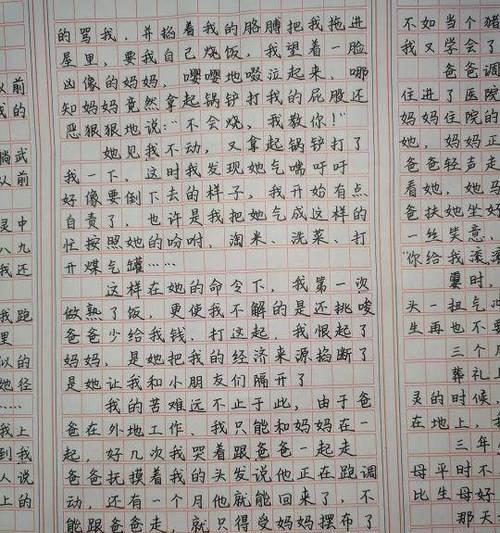 以前
我的
躺武
以前
灵中
八九
我还
我跑
里
似的
她径
……
我上
到我
人说
上的
的骂我，并掐着我的胳膊把我拖进
屋里，要我自己烧饭，我望着一脸
凶像的妈妈，嘤嘤地啜泣起来、哪
知妈妈竟然拿起锅铲打我的屁股还
恶狠狠地说：“不会烧，我教你！”
她见我不动，又拿起锅铲打了
我一下，这时我发现她气喘吁吁
好像要倒下去的样子，我开始有点
自责了，也许是我把她气成这样的
忙按照她的吩咐，淘米、洗菜、打
开煤气罐……
这样在她的命令下，我第一次
做熟了饭，更使我不解的是还挑唆
爸爸少给我钱、打这起，我恨起了
妈妈，是她把我的经济来源掐断了
是她让我和小朋友们隔开了
我的苦难远不止于此，由于爸
爸在外地工作、我只能和妈妈在一
起，好几次我哭着跟爸爸一起走
爸爸抚摸着我的头发说他正在跑调
动，还有一个月他就能回来了，不
能跟爸爸走，就只得受妈妈摆布了
不如当个猪
我又学会了
爸爸调
住进了医院
妈妈住院的
她，妈妈正
爸爸轻声走
看她，她马
爸扶她坐好
一丝笑意，
“你给我滚滚
霎时，
头一扭气冲
生再也不
三个月
葬礼上
灵的时候，
在地上，我
三年
母平时不
比生母好
那天